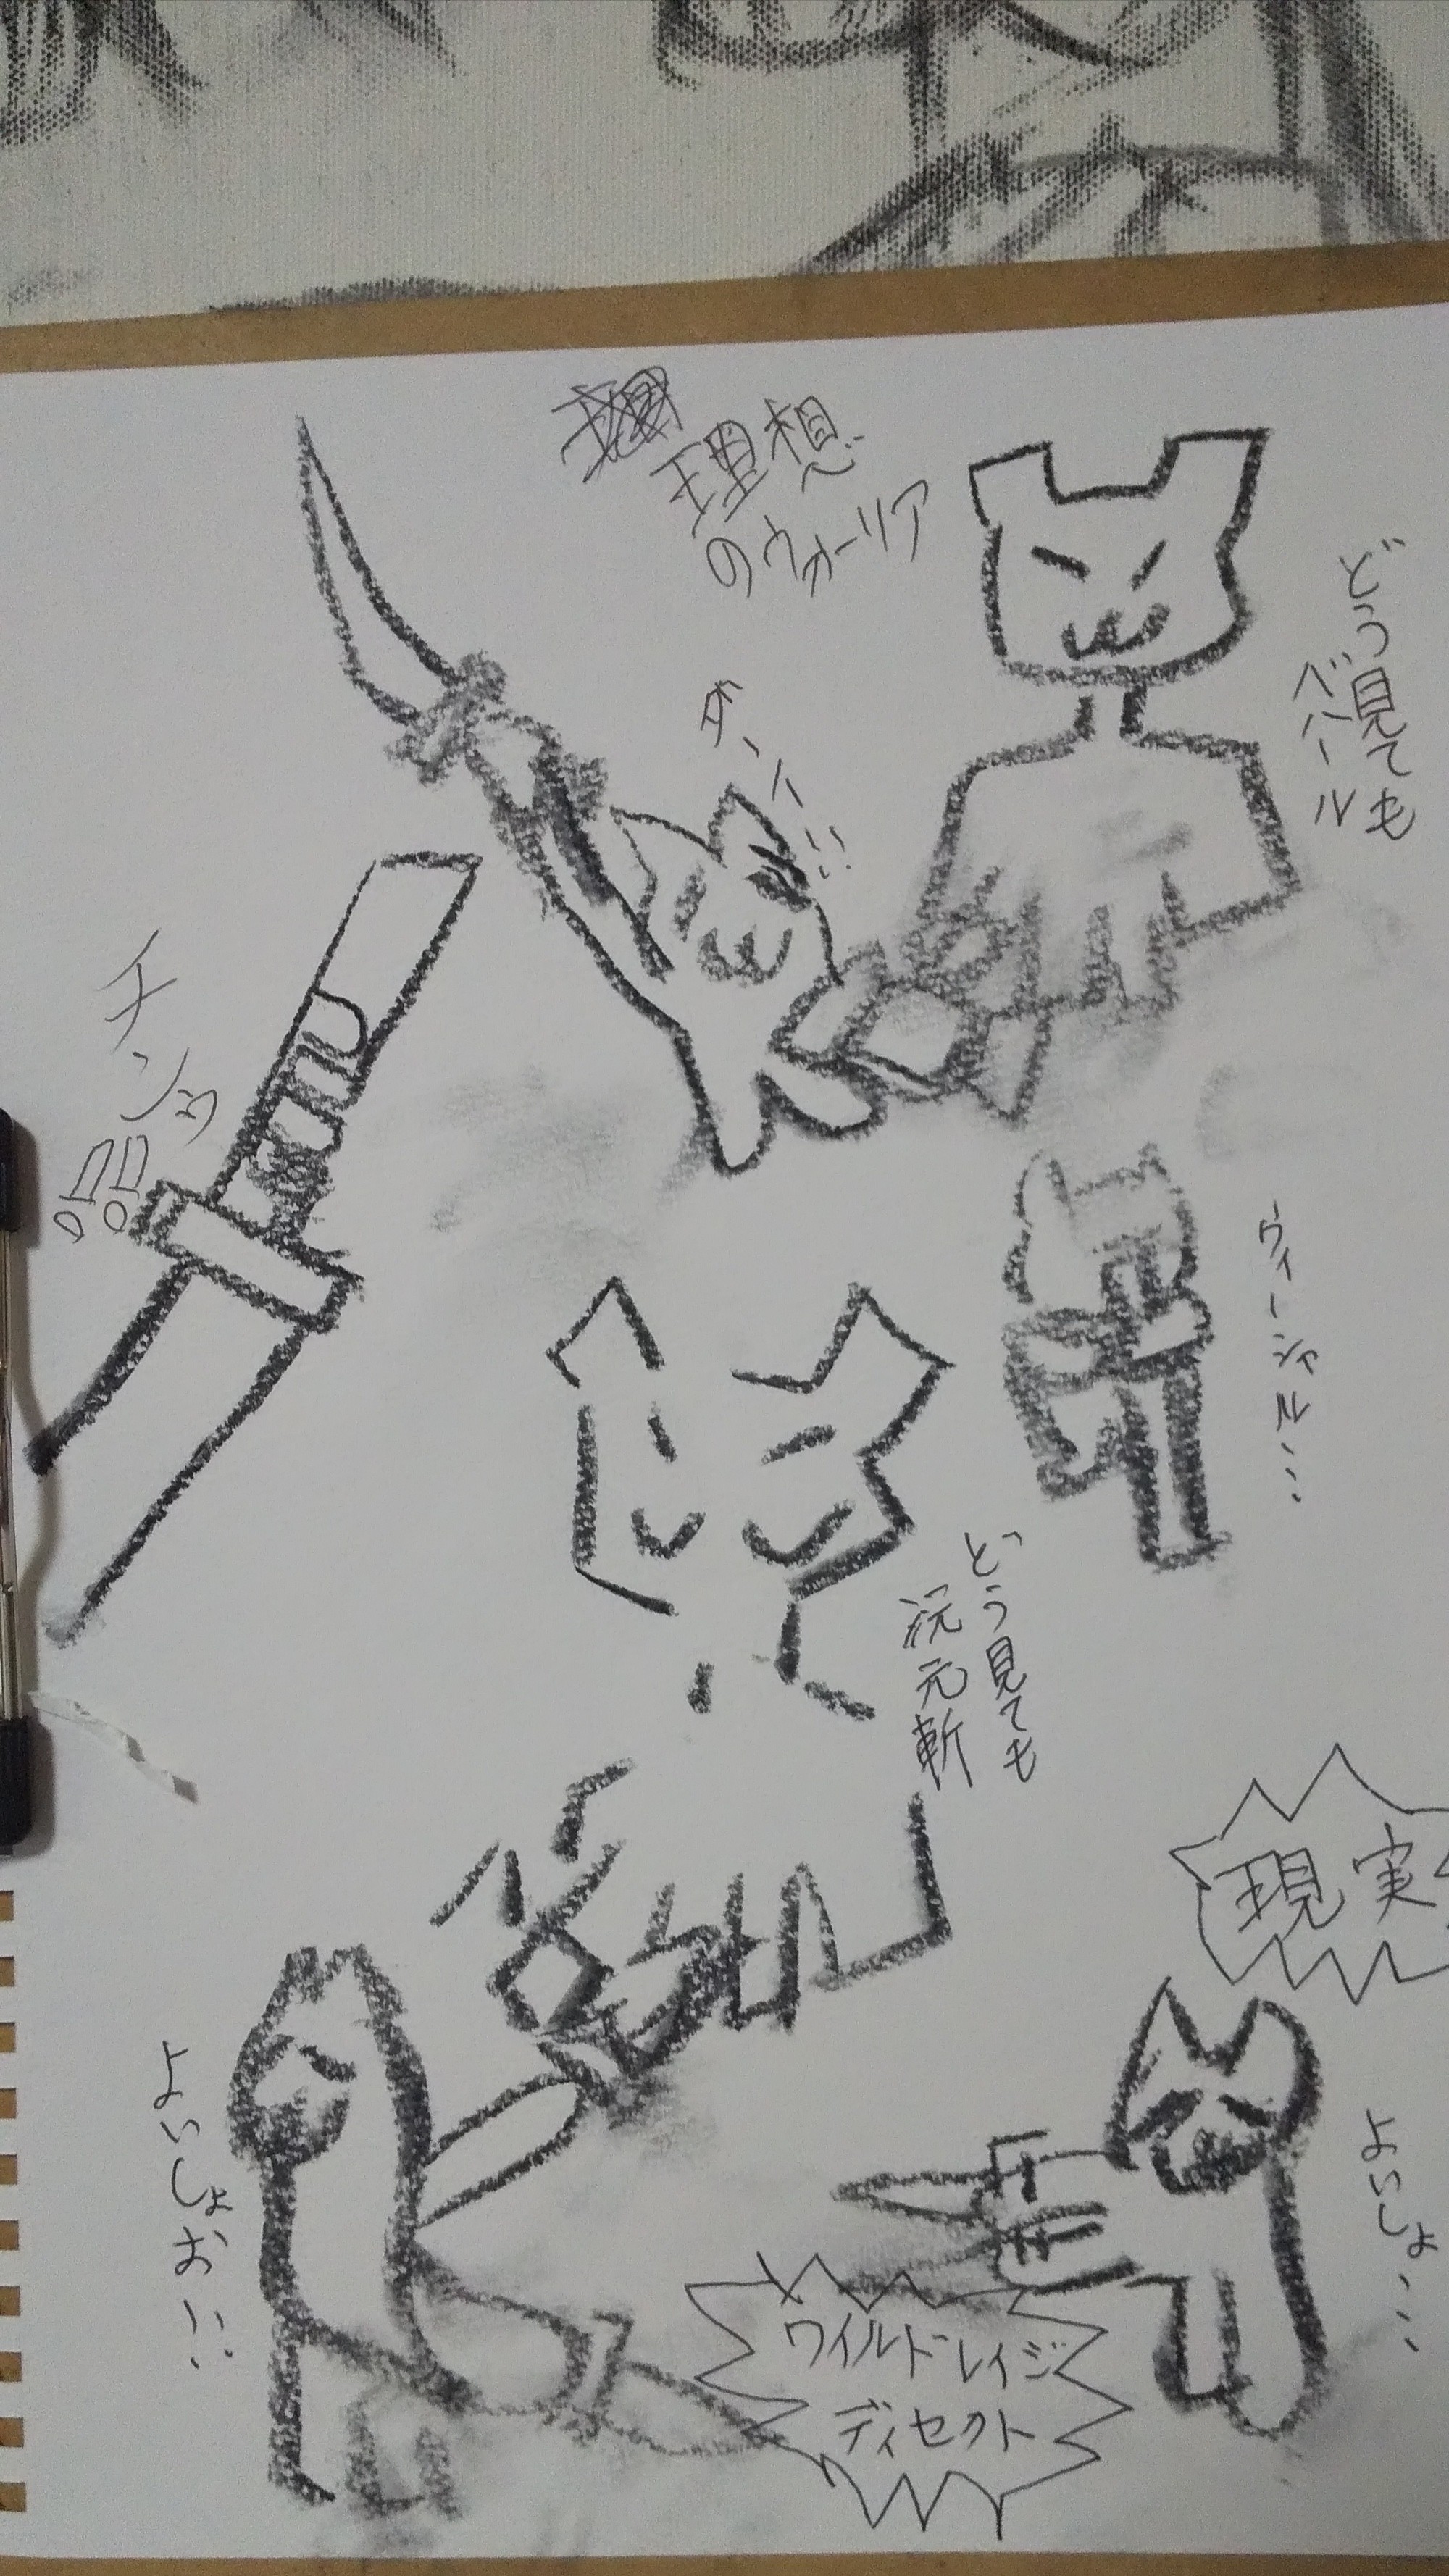 理想
のウォーリア
どう見ても
バハール
ダンイ!!
チンッ
ウィーシァル…
どう見ても
次元斬
現実
よいしょ…
よいしょお!!
ワイルドレイジ
ディセクト